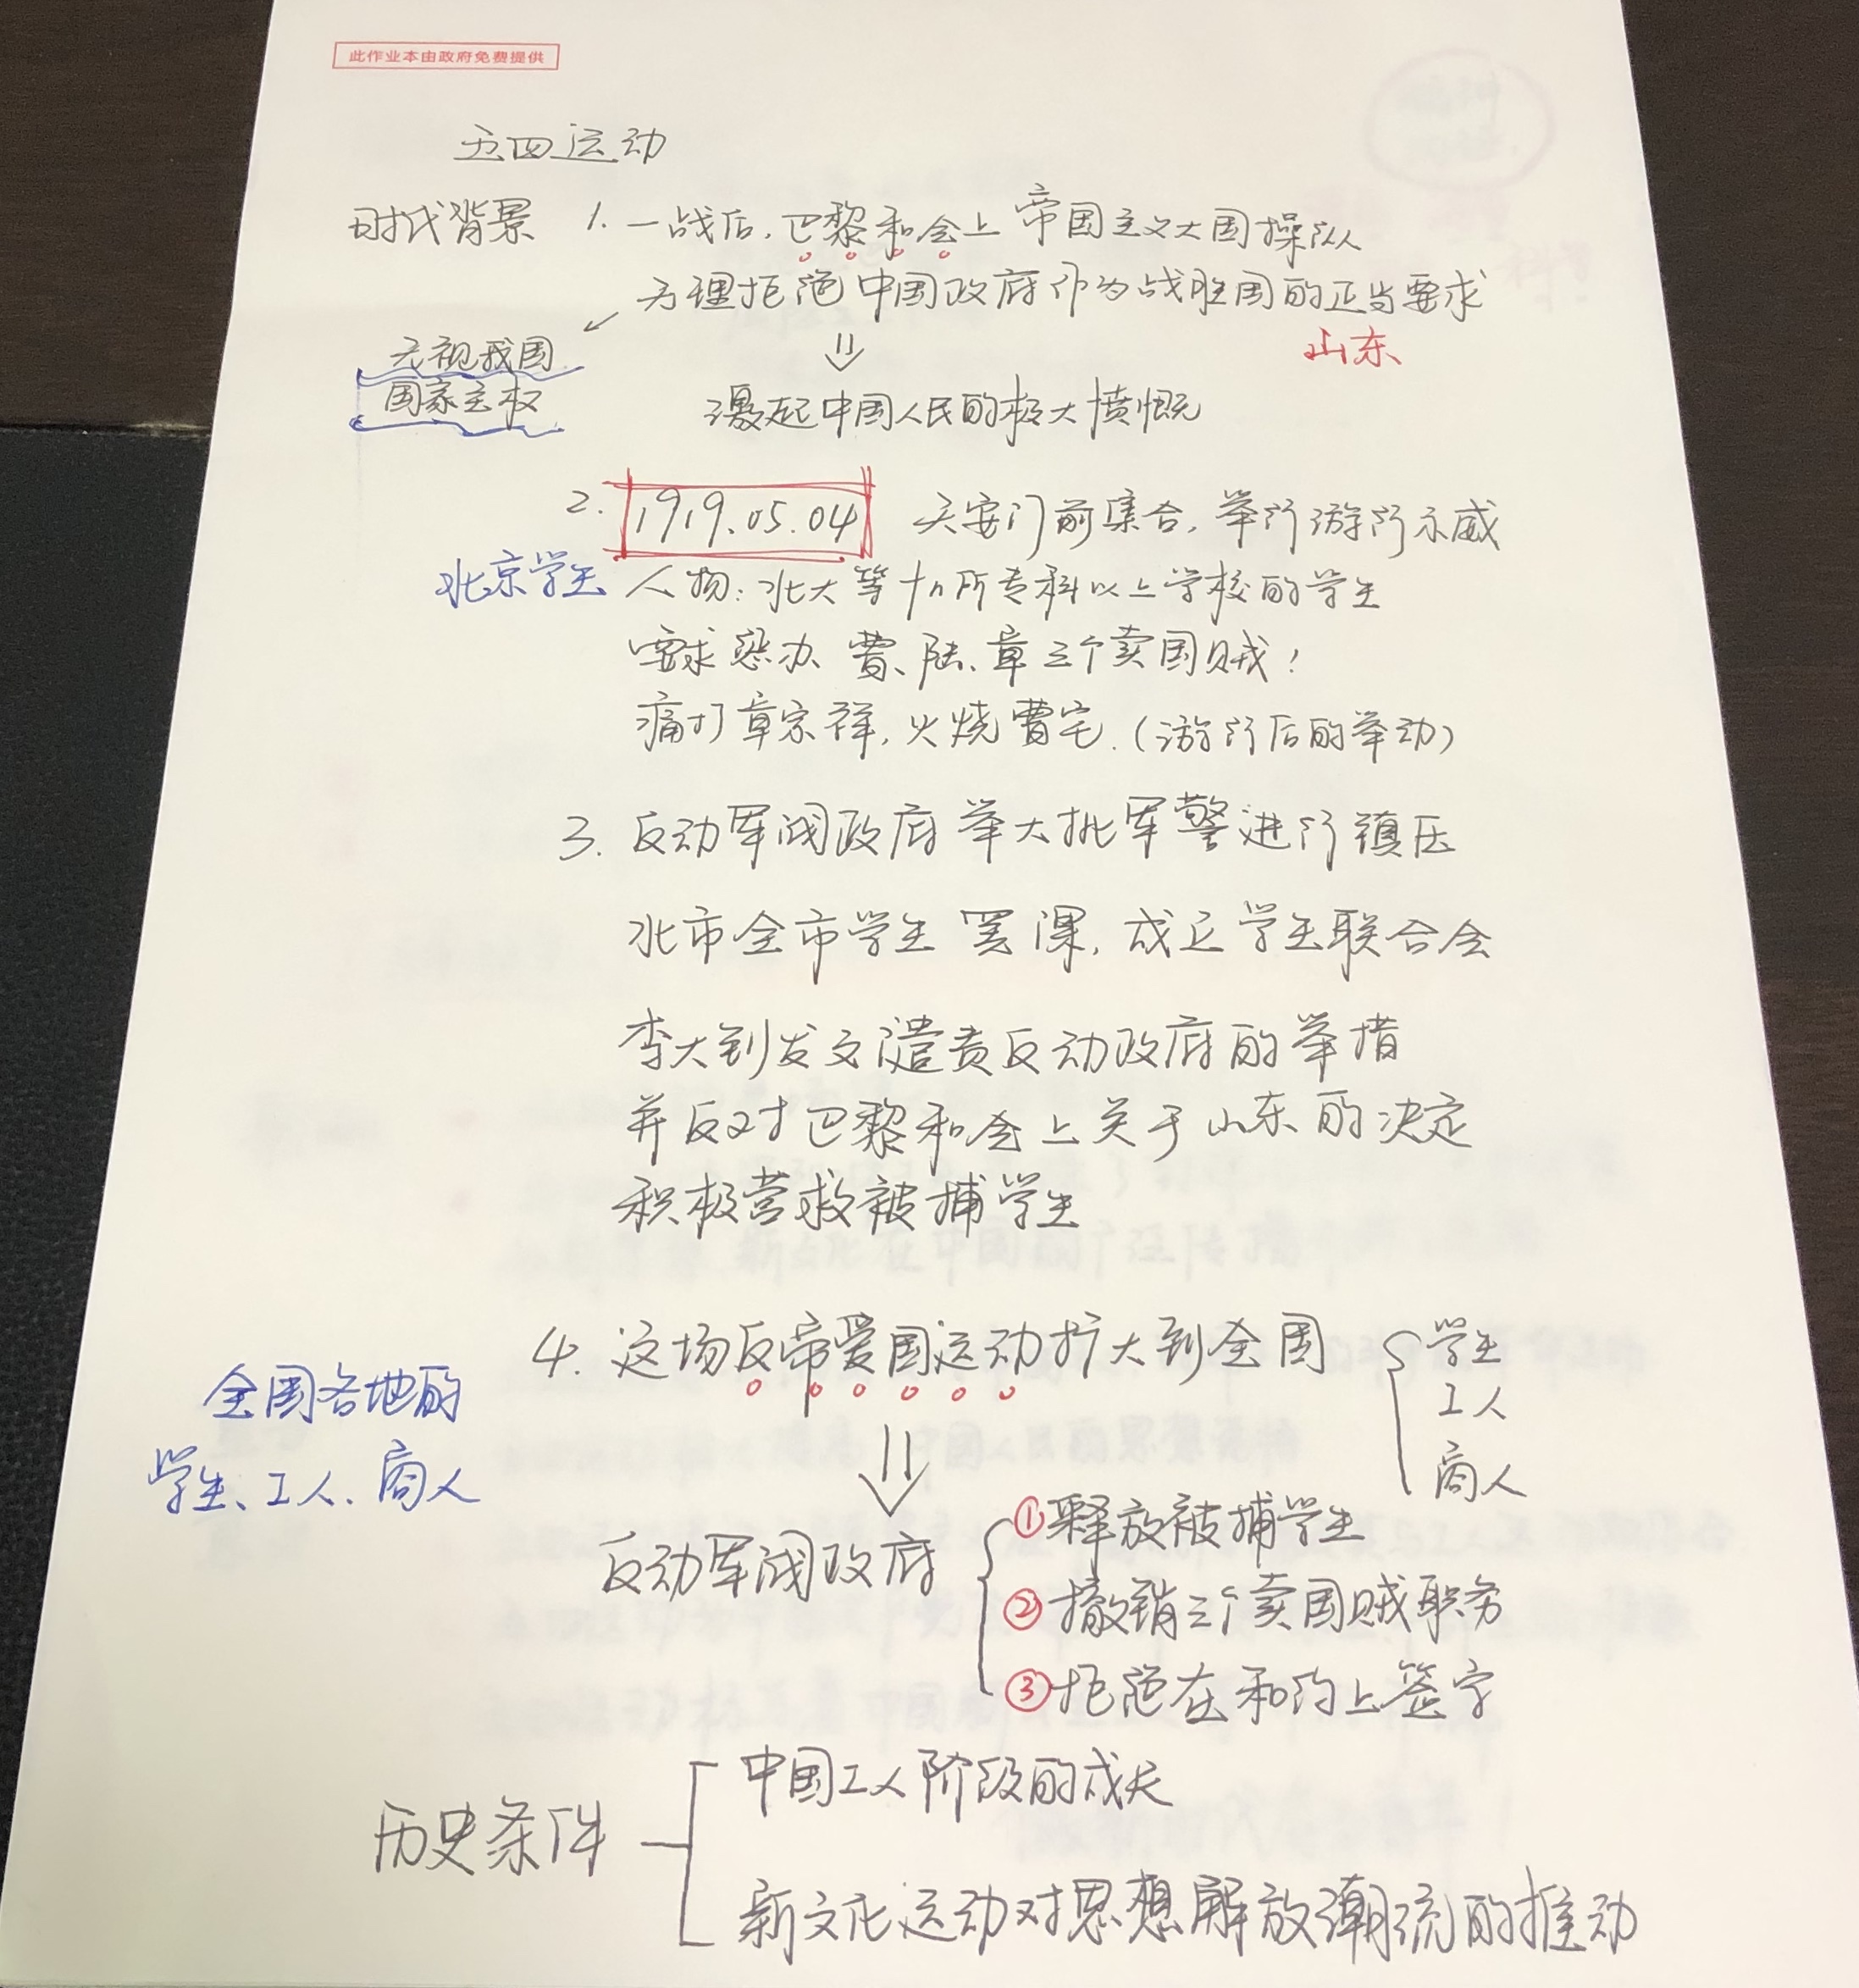 此作业本由政府免费提供
五四运动
时代背景 1. 一战后,巴黎和会上帝国主义大国操队
无理拒绝中国政府作为战胜国的正当要求
山东
无视我国
国家主权
激起中国人民的极大愤慨
2. 1919.05.04 天安门前集合,举行游行示威
北京学生 人物:北大等十几所专科以上学校的学生
要求惩办 曹、陆、章三个卖国贼!
痛打章宗祥,火烧曹宅.(游行后的举动)
3. 反动军阀政府 举大批军警进行镇压
北市全市学生 罢课,成立学生联合会
李大钊发文谴责反动政府的举措
并反对巴黎和会上关于山东的决定
积极营救被捕学生
4. 这场反帝爱国运动扩大到全国
学生
工人
商人
全国各地的
学生、工人、商人
反动军阀政府
①释放被捕学生
②撤销三个卖国贼职务
③拒绝在和约上签字
历史条件
中国工人阶级的成长
新文化运动对思想解放潮流的推动